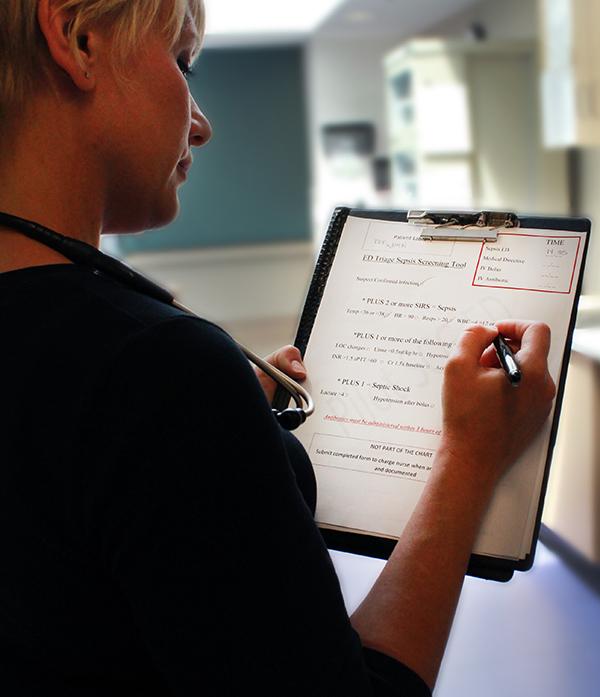 Patient
TIME
Sepsis
Medical Directive
IV Bolus
IV Antibiotic
ED Triage Sepsis Screening Tool
Suspect/Confirmed Infection
* PLUS 2 or more SIRS = Sepsis
Temp <36 or >38 HR > 90 Resps > 20 WBC
*PLUS 1 or more of the following
LOC changes Urine <0.5ml/kg/hr
INR >1.5 aPTT >60 Cr 1.5x baseline
* PLUS 1 = Septic Shock
Lactate >4 Hypotension after bolus
Antibiotics must be administered within 3 hours of
NOT PART OF THE CHART
Submit completed form to charge nurse when
and documented